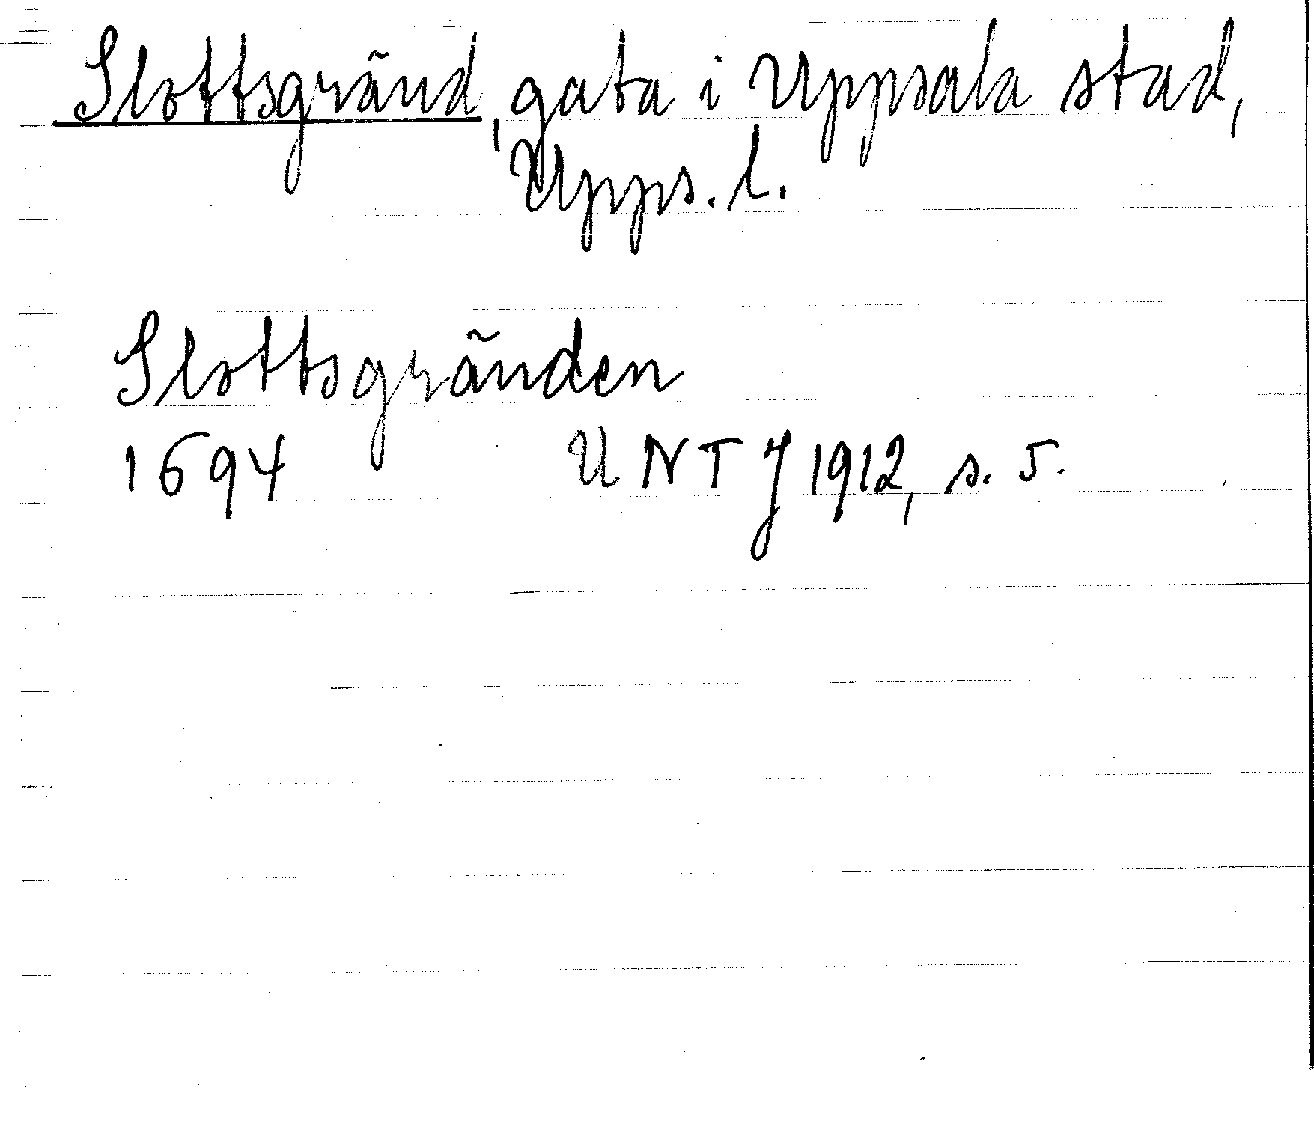 Slottsgränd, gata i Uppsala stad,
Upps. l.
Slottsgränden
1694 UNT J 1912, s. 5.